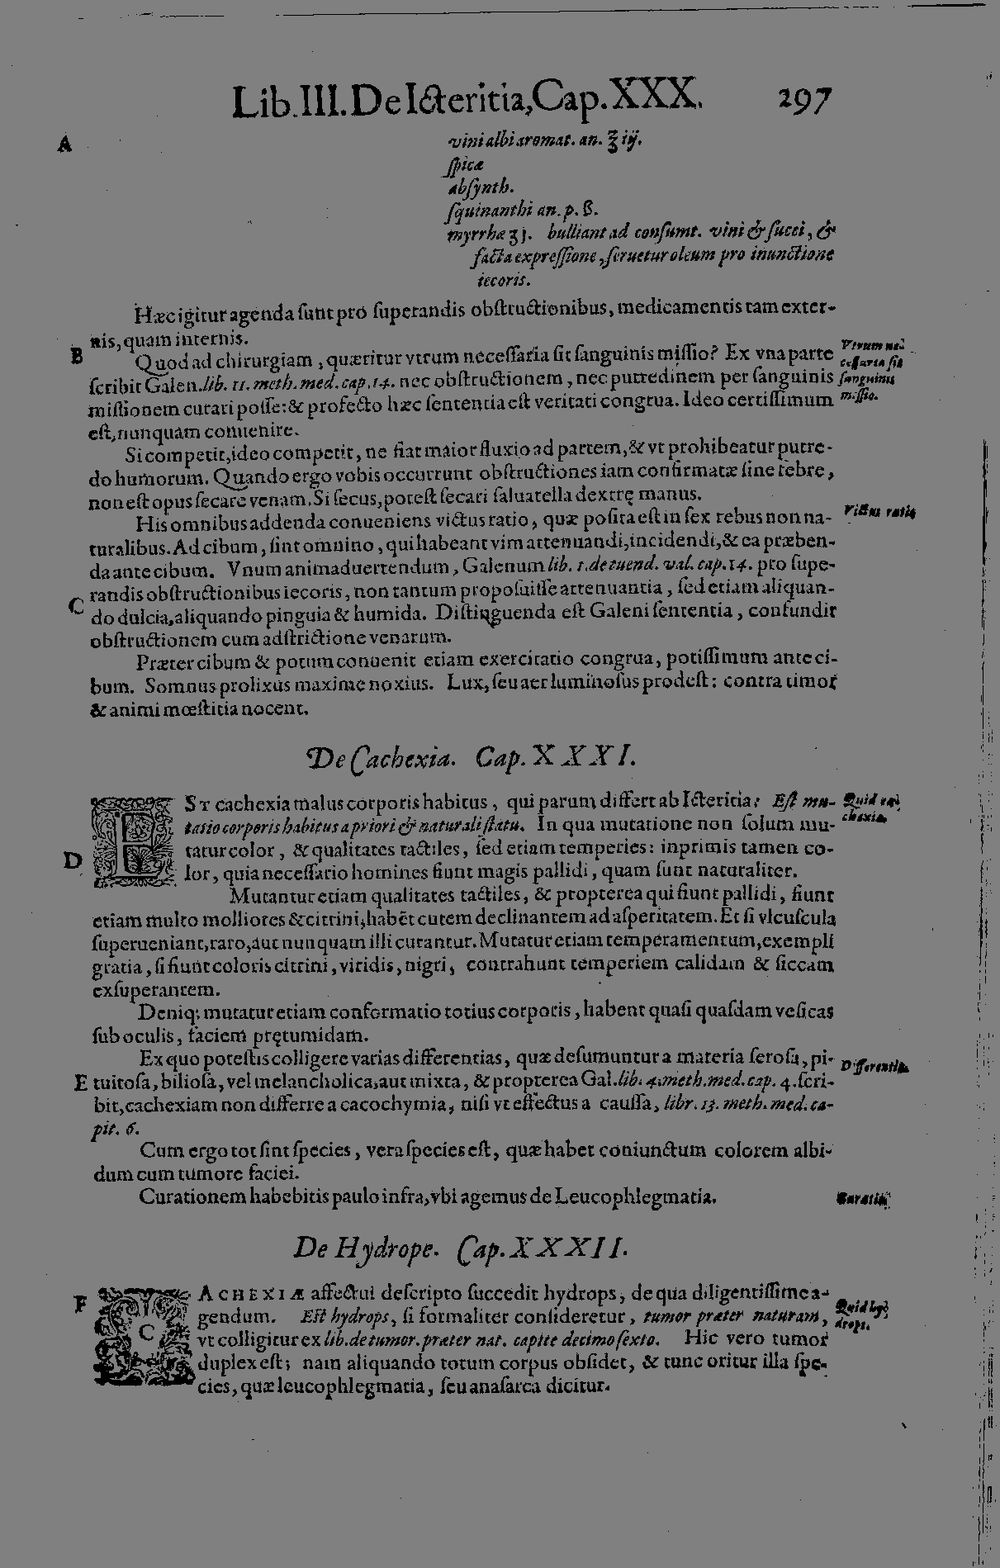 Lib. III. De Icteritia, Cap. XXX. 297
A
vini albi aromat. an. ʒ iij.
ſpicæ
abſynth.
ſquinanthi an. p. ß.
myrrhæ ʒ j. bulliant ad conſumt. vini & ſucci, &
facta expreſſione, ſeruetur oleum pro inunctione
iecoris.
Hæc igitur agenda ſunt pro ſuperandis obſtructionibus, medicamentis tam exter-
nis, quam internis.
B
Quod ad chirurgiam, quæritur vtrum neceſſaria ſit ſanguinis miſſio? Ex vna parte
Vtrum ne-
ceſſaria ſit
ſanguinis
miſſio.
ſcribit Galen. lib. 11. meth. med. cap. 14. nec obſtructionem, nec putredinem per ſanguinis
miſſionem curari poſſe: & profecto hæc ſententia eſt veritati congrua. Ideo certiſſimum
eſt, nunquam conuenire.
Si competit, ideo competit, ne fiat maior fluxio ad partem, & vt prohibeatur putre-
do humorum. Quando ergo vobis occurrunt obſtructiones iam confirmatæ ſine febre,
non eſt opus ſecare venam. Si ſecus, poteſt ſecari ſaluatella dextrę manus.
His omnibus addenda conueniens victus ratio, quæ poſita eſt in ſex rebus non na-
Victus ratio
turalibus. Ad cibum, ſint omnino, qui habeant vim attenuandi, incidendi, & ea præben-
da ante cibum. Vnum animaduertendum, Galenum lib. 1. de tuend. val. cap. 14. pro ſupe-
randis obſtructionibus iecoris, non tantum propoſuiſſe attenuantia, ſed etiam aliquan-
C
do dulcia, aliquando pinguia & humida. Diſtinguenda eſt Galeni ſententia, confundit
obſtructionem cum adſtrictione venarum.
Præter cibum & potum conuenit etiam exercitatio congrua, potiſſimum ante ci-
bum. Somnus prolixus maxime noxius. Lux, ſeu aer luminoſus prodeſt: contra timor
& animi mœſtitia nocent.
De Cachexia. Cap. XXXI.
EST cachexia malus corporis habitus, qui parum differt ab Icteritia: Eſt mu-
Quid ca-
chexia.
tatio corporis habitus a priori & naturali ſtatu. In qua mutatione non ſolum mu-
tatur color, & qualitates tactiles, ſed etiam temperies: inprimis tamen co-
D
lor, quia neceſſario homines fiunt magis pallidi, quam ſunt naturaliter.
Mutantur etiam qualitates tactiles, & propterea qui fiunt pallidi, fiunt
etiam multo molliores & citrini, habēt cutem declinantem ad aſperitatem. Et ſi vlcuſcula
ſuperueniant, raro, aut nunquam illi curantur. Mutatur etiam temperamentum, exempli
gratia, ſi fiunt coloris citrini, viridis, nigri, contrahunt temperiem calidam & ſiccam
exſuperantem.
Deniq; mutatur etiam conformatio totius corporis, habent quaſi quaſdam veſicas
ſub oculis, faciem prętumidam.
Ex quo poteſtis colligere varias differentias, quæ deſumuntur a materia ſeroſa, pi-
Differentiæ.
E
tuitoſa, bilioſa, vel melancholica, aut mixta, & propterea Gal. lib. 4. meth. med. cap. 4. ſcri-
bit, cachexiam non differre a cacochymia, niſi vt effectus a cauſſa, libr. 13. meth. med. ca-
pit. 6.
Cum ergo tot ſint ſpecies, vera ſpecies eſt, quæ habet coniunctum colorem albi-
dum cum tumore faciei.
Curationem habebitis paulo infra, vbi agemus de Leucophlegmatia.
Curatio.
De Hydrope. Cap. XXXII.
F
CACHEXIÆ affectui deſcripto ſuccedit hydrops, de qua diligentiſſime a-
gendum. Eſt hydrops, ſi formaliter conſideretur, tumor præter naturam,
Quid hy-
drops.
vt colligitur ex lib. de tumor. præter nat. capite decimo ſexto. Hic vero tumor
duplex eſt; nam aliquando totum corpus obſidet, & tunc oritur illa ſpe-
cies, quæ leucophlegmatia, ſeu anaſarca dicitur.